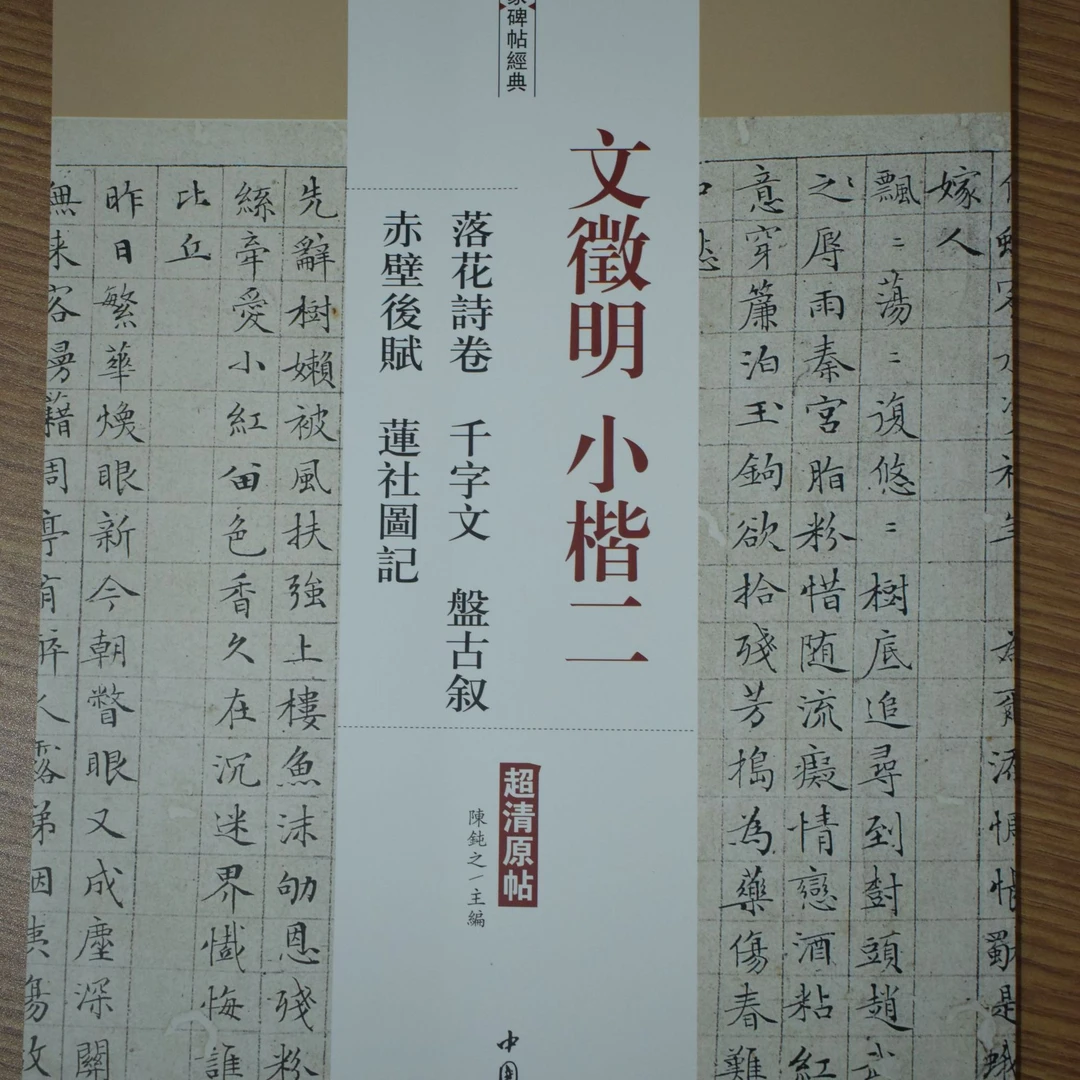 碑帖經典
文徵明 小楷二
落花詩卷 千字文 盤古叙
赤壁後賦 蓮社圖記
超清原帖
陳鈍之/主編
中國
嫁人
飄〻蕩〻復悠〻樹底追尋到對頭趙
之辱雨秦宮脂粉惜随流癡情戀酒粘紅
意穿簾泊玉鈎欲拾殘芳搗為藥傷春難
先辭樹嬾被風扶強上樓魚沫恩殘粉
絲牽愛小紅留色香久在沉迷界懺悔誰
比丘
昨日繁華煥眼新今朝瞥眼又成塵深關
無来客藉周亭有人